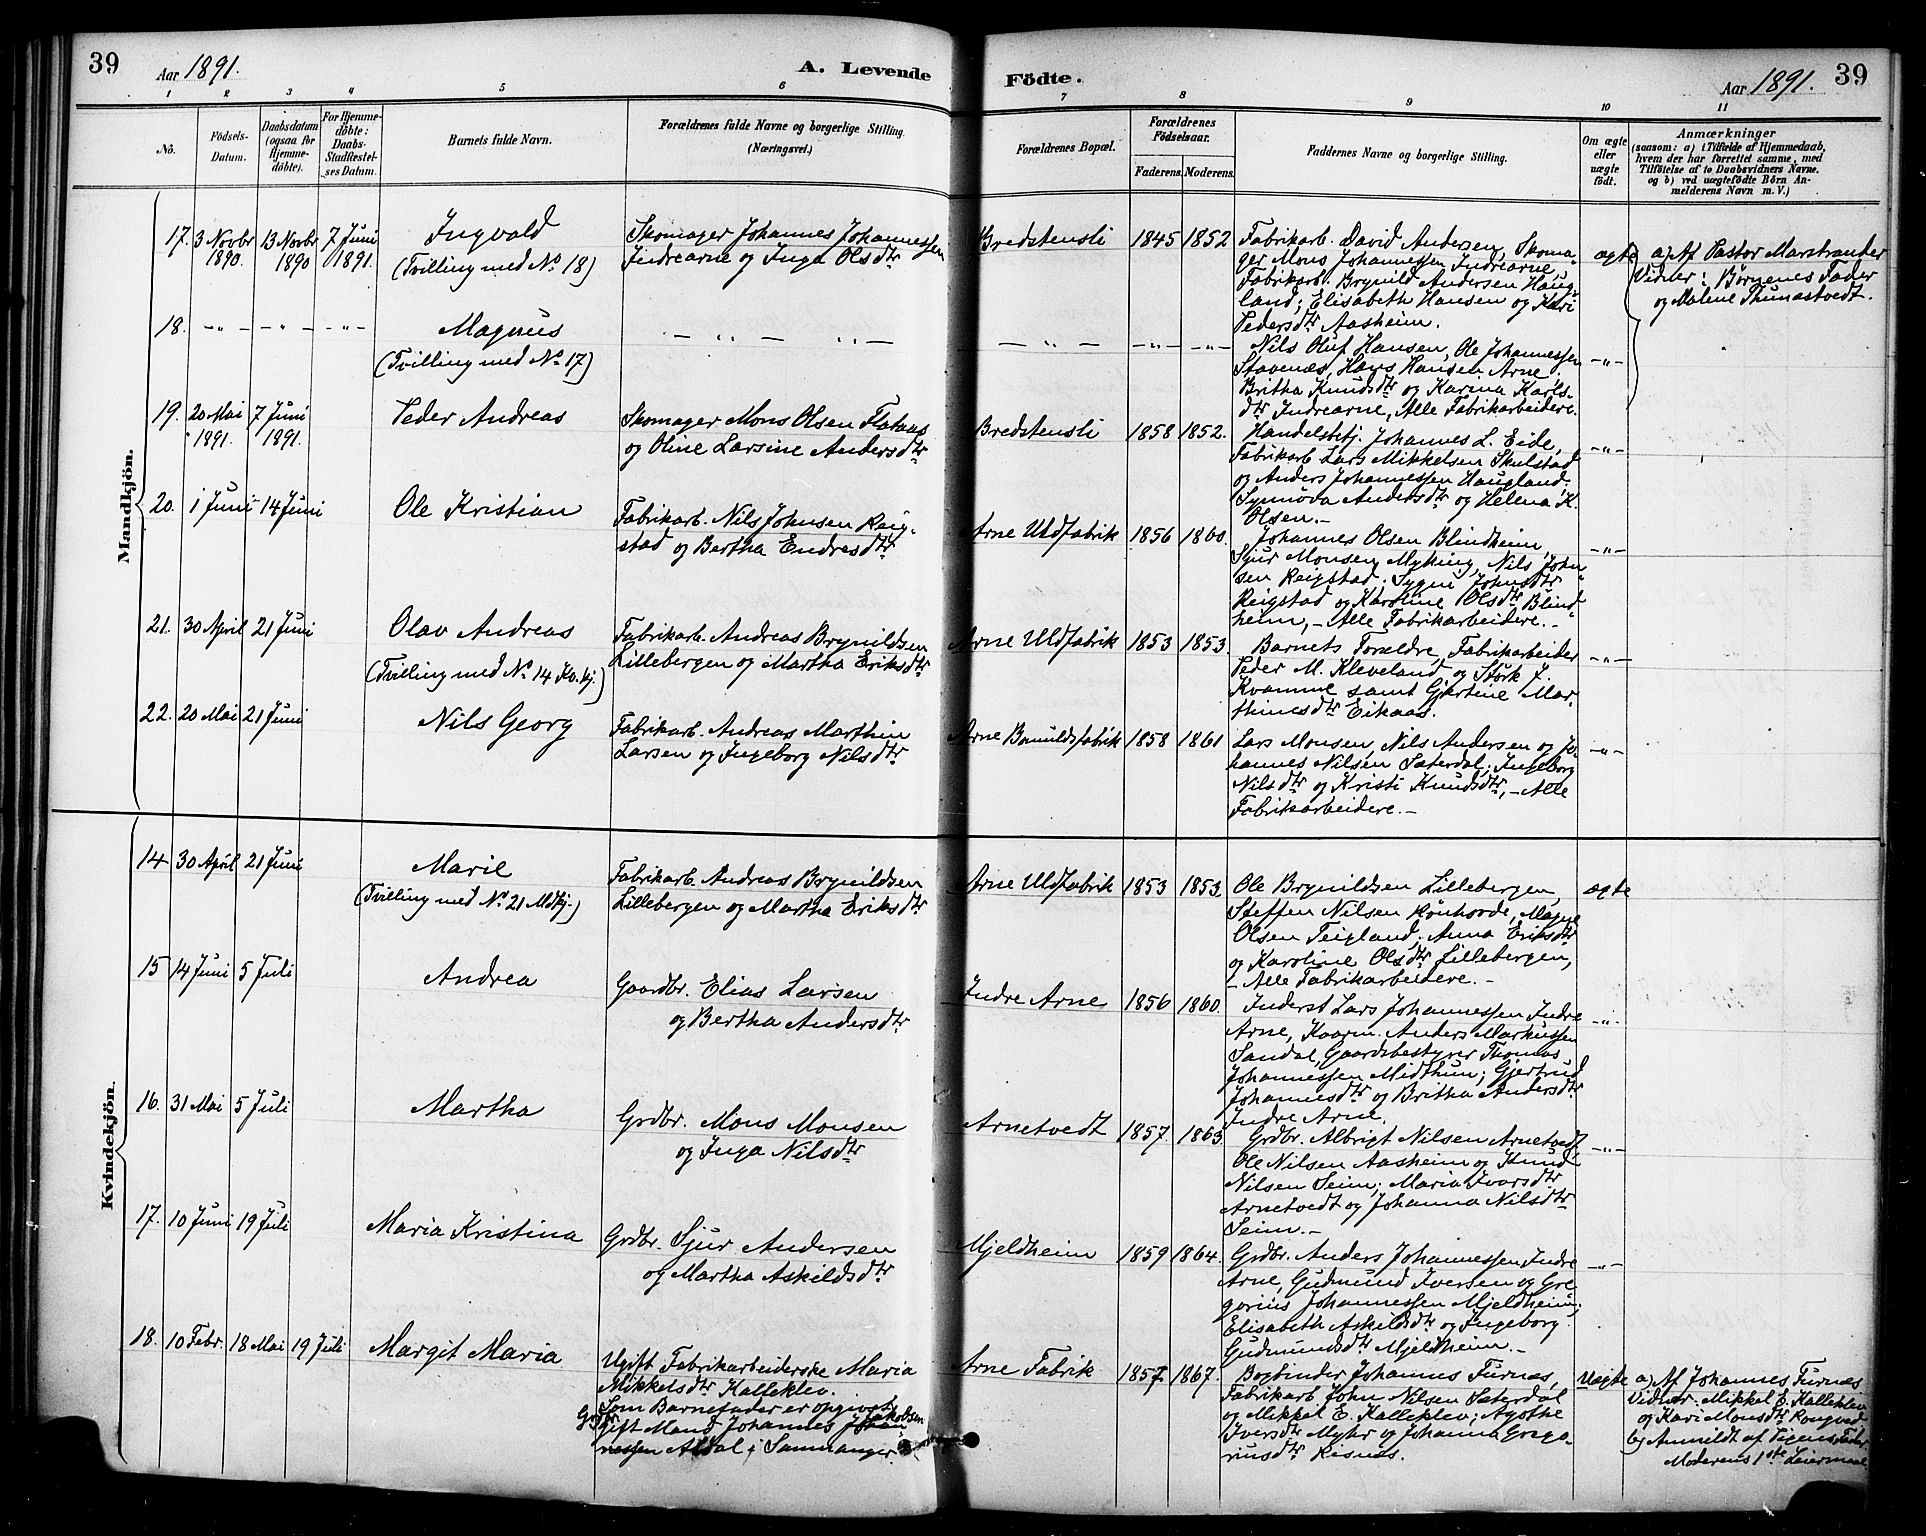 39
Aar 1891.
A. Levende
Födte.
Aar 1891.
39
1 2 3 4 5 6 7 8 9 10 11
No.
Födsels-
Datum.
Daabsdatum
(ogsaa for
Hjemme-
döbte).
For Hjemme-
döbte:
Daabs-
Stadfæstel-
ses Datum.
Barnets fulde Navn.
Forældrenes fulde Navne og borgerlige Stilling.
(Næringsvei.)
Forældrenes Bopæl.
Forældrenes
Födselsaar.
Faderens. Moderens.
Faddernes Navne og borgerlige Stilling.
Om ægte
eller
uægte
födt.
Anmærkninger
(saasom: a) i Tilfælde af Hjemmedaab,
hvem der har forrettet samme, med
Tilföielse af to Daabsvidners Navne,
og b) ved uægtefödte Börn An-
melderens Navn m. V.)
Mandkjön.
17. 3 Novbr 1890. 13 Novbr 1890 7 Juni 1891.
Ingvald
(Tvilling med No 18)
Skomager Johannes Johannessen
Indrearne og Inga Olsdtr
Bredstensli 1845 1852
Fabrikarb. David Andersen, Skoma-
ger Mons Johannessen Indrearne,
Fabrikarb. Brynild Andersen Haug-
land; Elisabeth Hansen og Kari
Pedersdtr Aasheim.
ægte
a) Af Pastor Marstrander
Vidner: Börnenes Fader
og Malene Thunæstvedt.
18. -"- -"- -"-
Magnus
(Tvilling med No 17)
- " - " -
- " - -"- -"-
Nils Oluf Hansen, Ole Johannessen
Stavenæs, Hans Hansen Arne,
Britha Knudsdtr og Karina Karls-
dtr Indrearne, Alle Fabrikarbeidere.
-"-
19. 20 Mai 1891. 7 Juni 1891.
Peder Andreas
Skomager Mons Olsen Flataas
og Oline Larsine Andersdtr
Bredstensli 1858 1852.
Handelsbetj. Johannes L. Eide,
Fabrikarb. Lars Mikkelsen Skulstad
og Anders Johannessen Haugland.
Synnöva Andersdtr og Helena K.
Olsen.-
-"-
20. 1 Juni 14 Juni
Ole Kristian
Fabrikarb. Nils Johnsen Reig-
stad og Bertha Endresdtr
Arne Uldfabrik 1856 1860.
Johannes Olsen Blindheim,
Sjur Monsen Myking, Nils John-
sen Reigstad. Sygni Johnsdtr
Reigstad og Karoline Olsdtr Blind-
heim, - Alle Fabrikarbeidere.-
-"-
21. 30 April 21 Juni
Olav Andreas
(Tvilling med No 14 Kv.kj.)
Fabrikarb. Andreas Brynildsen
Lillebergen og Martha Eriksdtr
Arne Uldfabrik 1853 1853.
Barnets Forældre, Fabrikarbeider
Peder M. Kleveland og Störk J.
Kvamme samt Gjertine Mar-
thinesdtr Eikaas.
-"-
22. 20 Mai 21 Juni
Nils Georg
Fabrikarb. Andreas Marthin
Larsen og Ingeborg Nilsdtr
Arne Bomuldsfabrik 1858 1861
Lars Monsen, Nils Andersen og Jo-
hannes Nilsen Sæterdal; Ingeborg
Nilsdtr og Kristi Knudsdtr, - Alle
Fabrikarbeidere.-
-"-
Kvindekjön.
14 30 April 21 Juni
Maril
(Tvilling med No 21 Mdkj.)
Fabrikarb. Andreas Brynildsen
Lillebergen og Martha Eriksdtr
Arne Uldfabrik 1853 1853.
Ole Brynildsen Lillebergen,
Steffen Nilsen Rönhovde, Magne
Olsen Teigland; Anna Eriksdtr
og Karoline Olsdtr Lillebergen,
- Alle Fabrikarbeidere.-
ægte
15 14 Juni 5 Juli
Andrea
Gaardbr. Elias Larsen
og Bertha Andersdtr
Indre Arne 1856 1860.
Inderst Lars Johannessen Indre
Arne, Kaarm. Anders Markussen
Sandal, Gaardsbestyrer Thomas
Johannessen Midthun; Gjertrud
Johannesdtr og Britha Andersdtr
Indre Arne.
-"-
16. 31 Mai 5 Juli
Martha
Grdbr. Mons Monsen
og Inga Nilsdtr
Arnetvedt 1857. 1863.
Grdbr. Albrigt Nilsen Arnetvedt,
Ole Nilsen Aasheim og Knud
Nilsen Seim; Maria Ivarsdtr
Arnetvedt og Johanna Nilsdtr
Seim.-
-"-
17. 10 Juni 19 Juli
Maria Kristina
Grdbr. Sjur Andersen
og Martha Askildsdtr
Mjeldheim 1859 1864.
Grdbr. Anders Johannessen Indre
Arne, Gudmund Iversen og Gre-
gorius Johannessen Mjeldheim;
Elisabeth Askildsdtr og Ingeborg
Gudmundsdtr Mjeldheim.-
-"-
18. 10 Febr. 18 Mai 19 Juli
Margit Maria
Ugift Fabrikarbeiderske Maria
Mikkelsdtr Kalleklev.
Som Barnefader er opgivet
Grdbr. gift Mand Johannes Jakobsen
Johan-
nessen Aldal i Samnanger
Arne Fabrik 1857. 1867.
Bogbinder Johannes Furnæs,
Fabrikarb. John Nilsen Sæterdal
og Mikkel E. Kalleklev; Agathe
Iversdtr Myhr og Johanna Grego-
riusdtr Risnæs.
Uægte
a) Af Johannes Furnæs
Vidner: Mikkel E. Kalleklev
og Kari Monsdtr Rongved
b) Anmeldt af Pigens Fader
Moderens 1ste Leiermaal